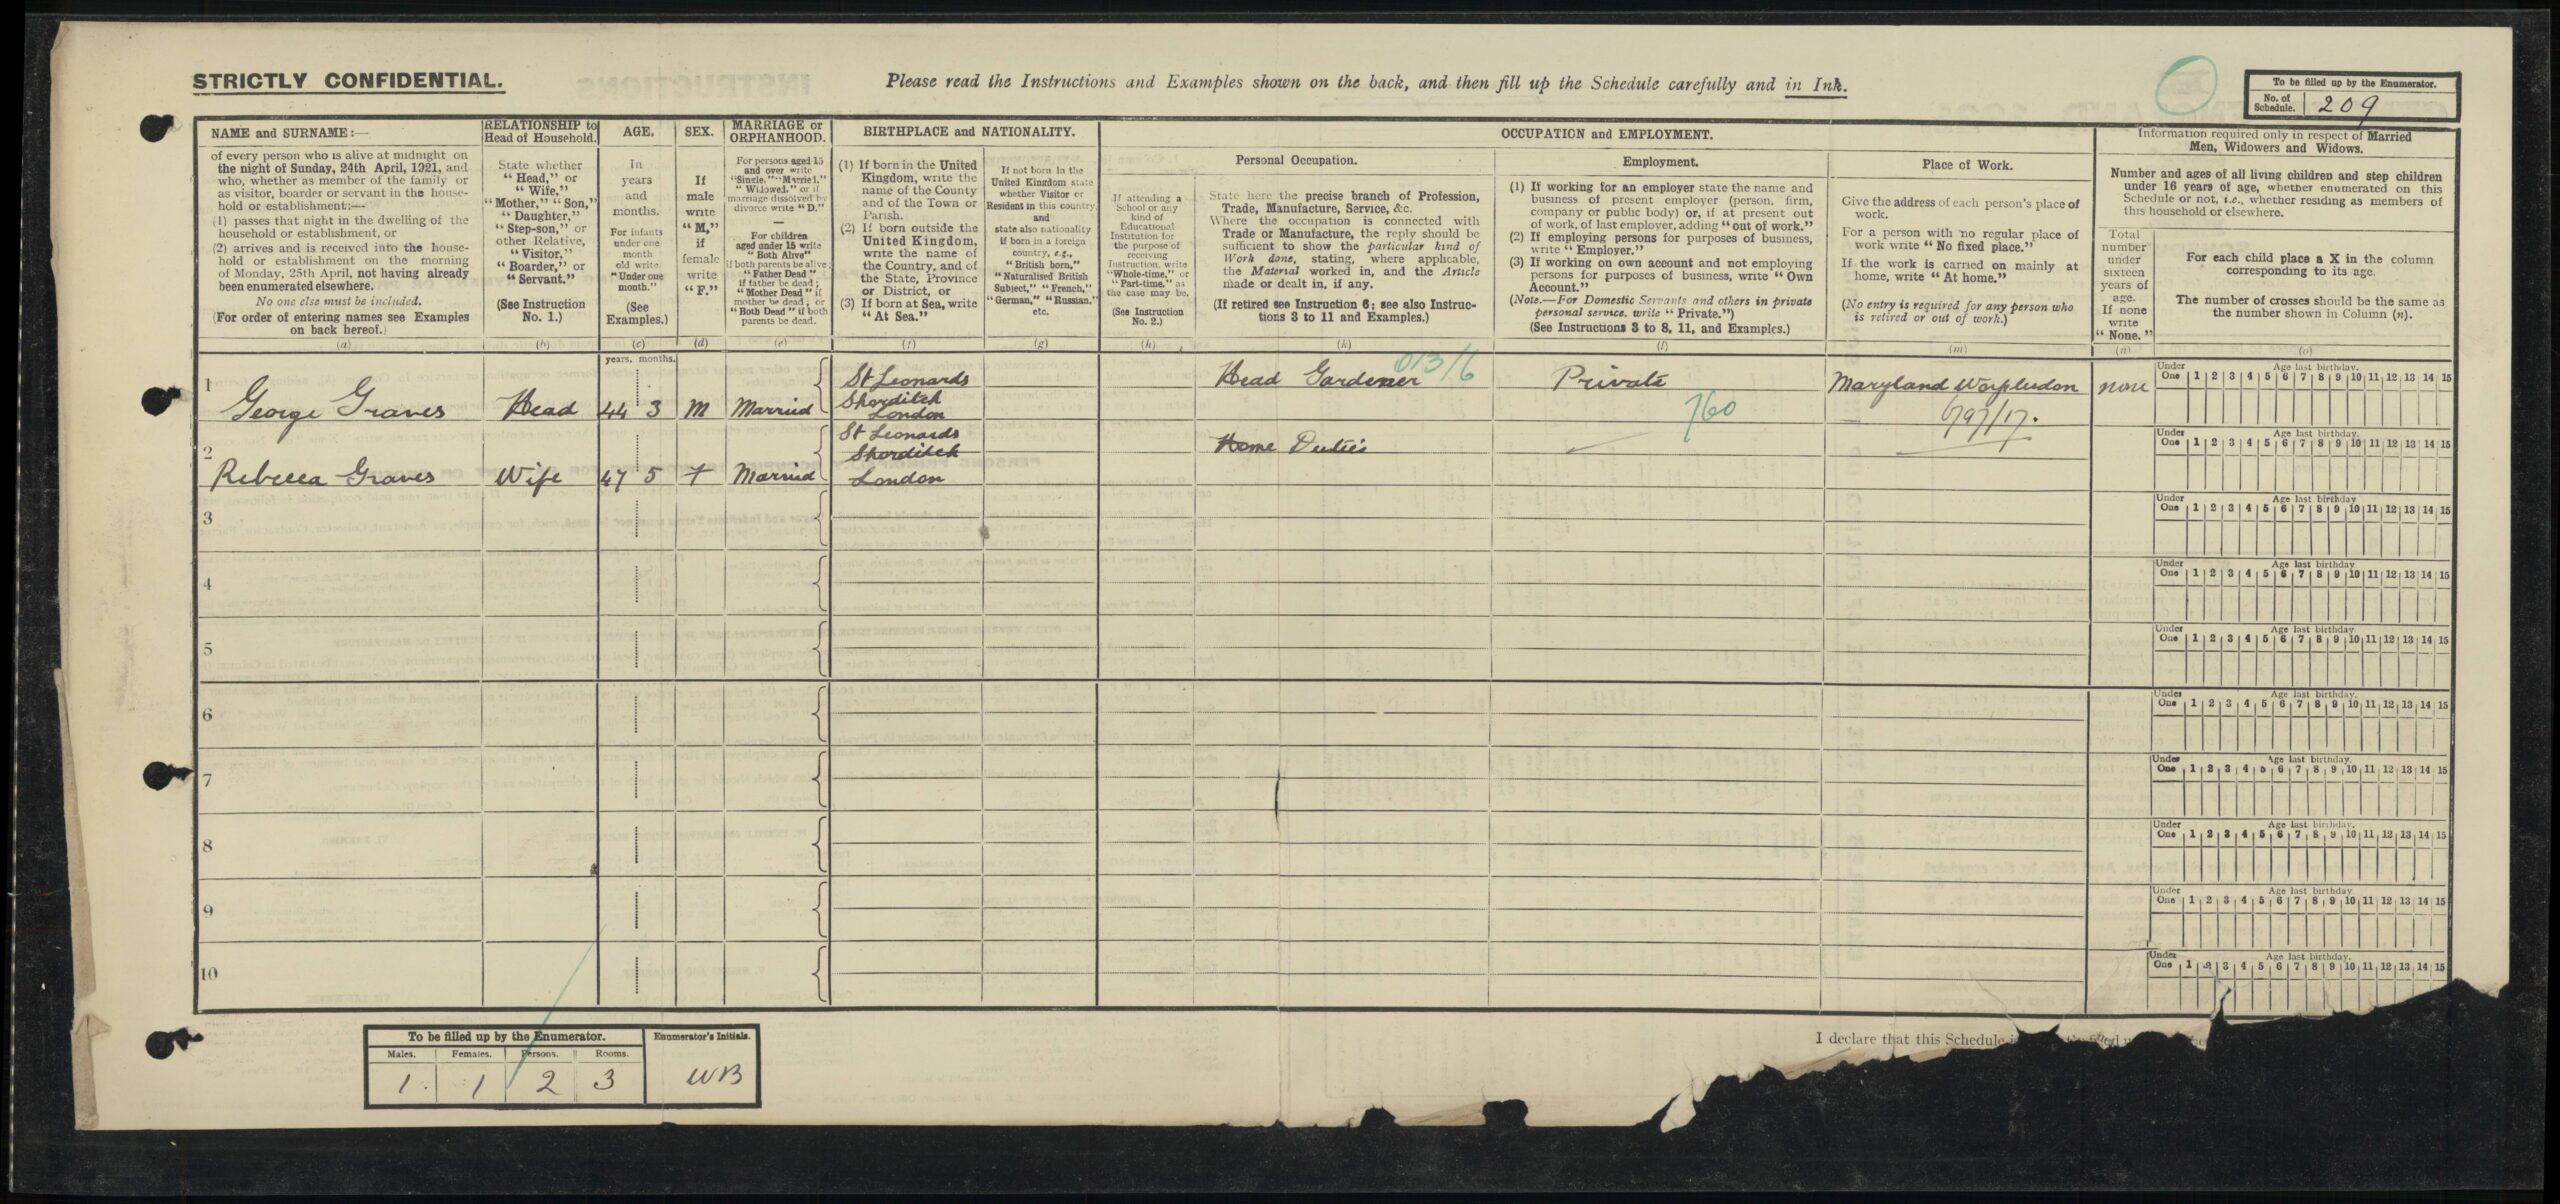 STRICTLY CONFIDENTIAL.
Please read the Instructions and Examples shown on the back, and then fill up the Schedule carefully and in Ink.
To be filled up by the Enumerator.
No. of Schedule. 209
NAME and SURNAME:—
of every person who is alive at midnight on
the night of Sunday, 24th April, 1921, and
who, whether as member of the family or
as visitor, boarder or servant in the house-
hold or establishment:—
(1) passes that night in the dwelling of the
household or establishment, or
(2) arrives and is received into the house-
hold or establishment on the morning
of Monday, 25th April, not having already
been enumerated elsewhere.
No one else must be included.
(For order of entering names see Examples
on back hereof.)
(a)
RELATIONSHIP to
Head of Household.
State whether
"Head," or
"Wife,"
"Mother," "Son,"
"Daughter,"
"Step-son," or
other Relative,
"Visitor,"
"Boarder," or
"Servant."
(See Instruction
No. 1.)
(b)
AGE.
In
years
and
months.
For infants
under one
month
old write
"Under one
month."
(See
Examples.)
(c)
SEX.
If
male
write
"M,"
if
female
write
"F."
(d)
MARRIAGE or
ORPHANHOOD.
For persons aged 15
and over write
"Single," "Married,"
"Widowed," or if
marriage dissolved by
divorce write "D."
—
For children
aged under 15 write
"Both Alive"
if both parents be alive;
"Father Dead"
if father be dead;
"Mother Dead" if
mother be dead; or
"Both Dead" if both
parents be dead.
(e)
BIRTHPLACE and NATIONALITY.
(1) If born in the United
Kingdom, write the
name of the County
and of the Town or
Parish.
(2) If born outside the
United Kingdom,
write the name of
the Country, and of
the State, Province
or District, or
(3) If born at Sea, write
"At Sea."
(f)
If not born in the
United Kingdom state
whether Visitor or
Resident in this country,
and
state also nationality
if born in a foreign
country, e.g.,
"British born,"
"Naturalised British
Subject," "French,"
"German," "Russian,"
etc.
(g)
OCCUPATION and EMPLOYMENT.
If attending a
School or any
kind of
Educational
Institution for
the purpose of
receiving
Instruction, write
"Whole-time," or
"Part-time," as
the case may be.
(See Instruction
No. 2.)
(h)
Personal Occupation.
State here the precise branch of Profession,
Trade, Manufacture, Service, &c.
Where the occupation is connected with
Trade or Manufacture, the reply should be
sufficient to show the particular kind of
Work done, stating, where applicable,
the Material worked in, and the Article
made or dealt in, if any.
(If retired see Instruction 6; see also Instruc-
tions 3 to 11 and Examples.)
(k)
Employment.
(1) If working for an employer state the name and
business of present employer (person, firm,
company or public body) or, if at present out
of work, of last employer, adding "out of work."
(2) If employing persons for purposes of business,
write "Employer."
(3) If working on own account and not employing
persons for purposes of business, write "Own
Account."
(Note.—For Domestic Servants and others in private
personal service, write "Private.")
(See Instructions 3 to 8, 11, and Examples.)
(l)
Place of Work.
Give the address of each person's place of
work.
For a person with no regular place of
work write "No fixed place."
If the work is carried on mainly at
home, write "At home."
(No entry is required for any person who
is retired or out of work.)
(m)
Information required only in respect of Married
Men, Widowers and Widows.
Number and ages of all living children and step children
under 16 years of age, whether enumerated on this
Schedule or not, i.e., whether residing as members of
this household or elsewhere.
Total
number
under
sixteen
years of
age.
If none
write
"None."
(n)
For each child place a X in the column
corresponding to its age.
The number of crosses should be the same as
the number shown in Column (n).
(o)
years. months.
1 George Graves Head 44 3 M Married St Leonards Shorditch London Head Gardener 013/6 Private 760 Maryland Worpledon 797/17. none
Under One Age last birthday. 1 2 3 4 5 6 7 8 9 10 11 12 13 14 15
2 Rebecca Graves Wife 47 5 F Married St Leonards Shorditch London Home Duties
Under One Age last birthday. 1 2 3 4 5 6 7 8 9 10 11 12 13 14 15
3
Under One Age last birthday 1 2 3 4 5 6 7 8 9 10 11 12 13 14 15
4
Under One Age last birthday 1 2 3 4 5 6 7 8 9 10 11 12 13 14 15
5
Under One Age last birthday. 1 2 3 4 5 6 7 8 9 10 11 12 13 14 15
6
Under One Age last birthday. 1 2 3 4 5 6 7 8 9 10 11 12 13 14 15
7
Under One Age last birthday. 1 2 3 4 5 6 7 8 9 10 11 12 13 14 15
8
Under One Age last birthday. 1 2 3 4 5 6 7 8 9 10 11 12 13 14 15
9
Under One Age last birthday 1 2 3 4 5 6 7 8 9 10 11 12 13 14 15
10
Under One Age last birthday. 1 2 3 4 5 6 7 8 9 10 11 12 13 14 15
To be filled up by the Enumerator.
Males. Females. Persons. Rooms.
1 1 2 3
Enumerator's Initials.
WB
I declare that this Schedule